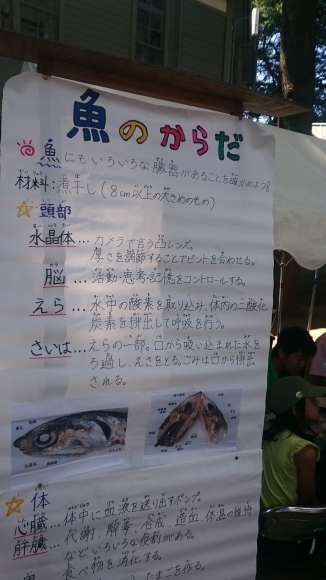 魚のからだ
魚にもいろいろな臓器があることを確かめよう!
材料:煮干し(8cm以上の大きめのもの)
☆頭部
水晶体…カメラで言う凸レンズ。
厚さを調節することでピントを合わせる。
脳…活動・思考・記憶をコントロールする。
えら…水中の酸素を取り込み、体内の二酸化
炭素を排出して呼吸を行う。
さいは…えらの一部。口から吸い込まれた水を
ろ過し、えさをとる。ごみは口から排出
される。
☆体
心臓…体中に血液を送り出すポンプ。
肝臓…代謝、解毒、合成、造血、体温の維持
などいろいろな役割がある。
食べ物を消化する。
たまごを作る。